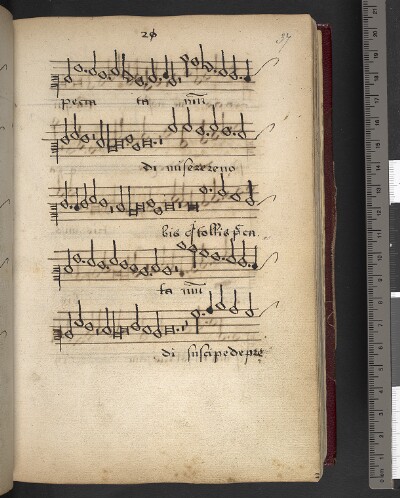 20
37
pecca ta mũ
di miserere no
bis q tollis pcca
ta mũ
di suscipe depre